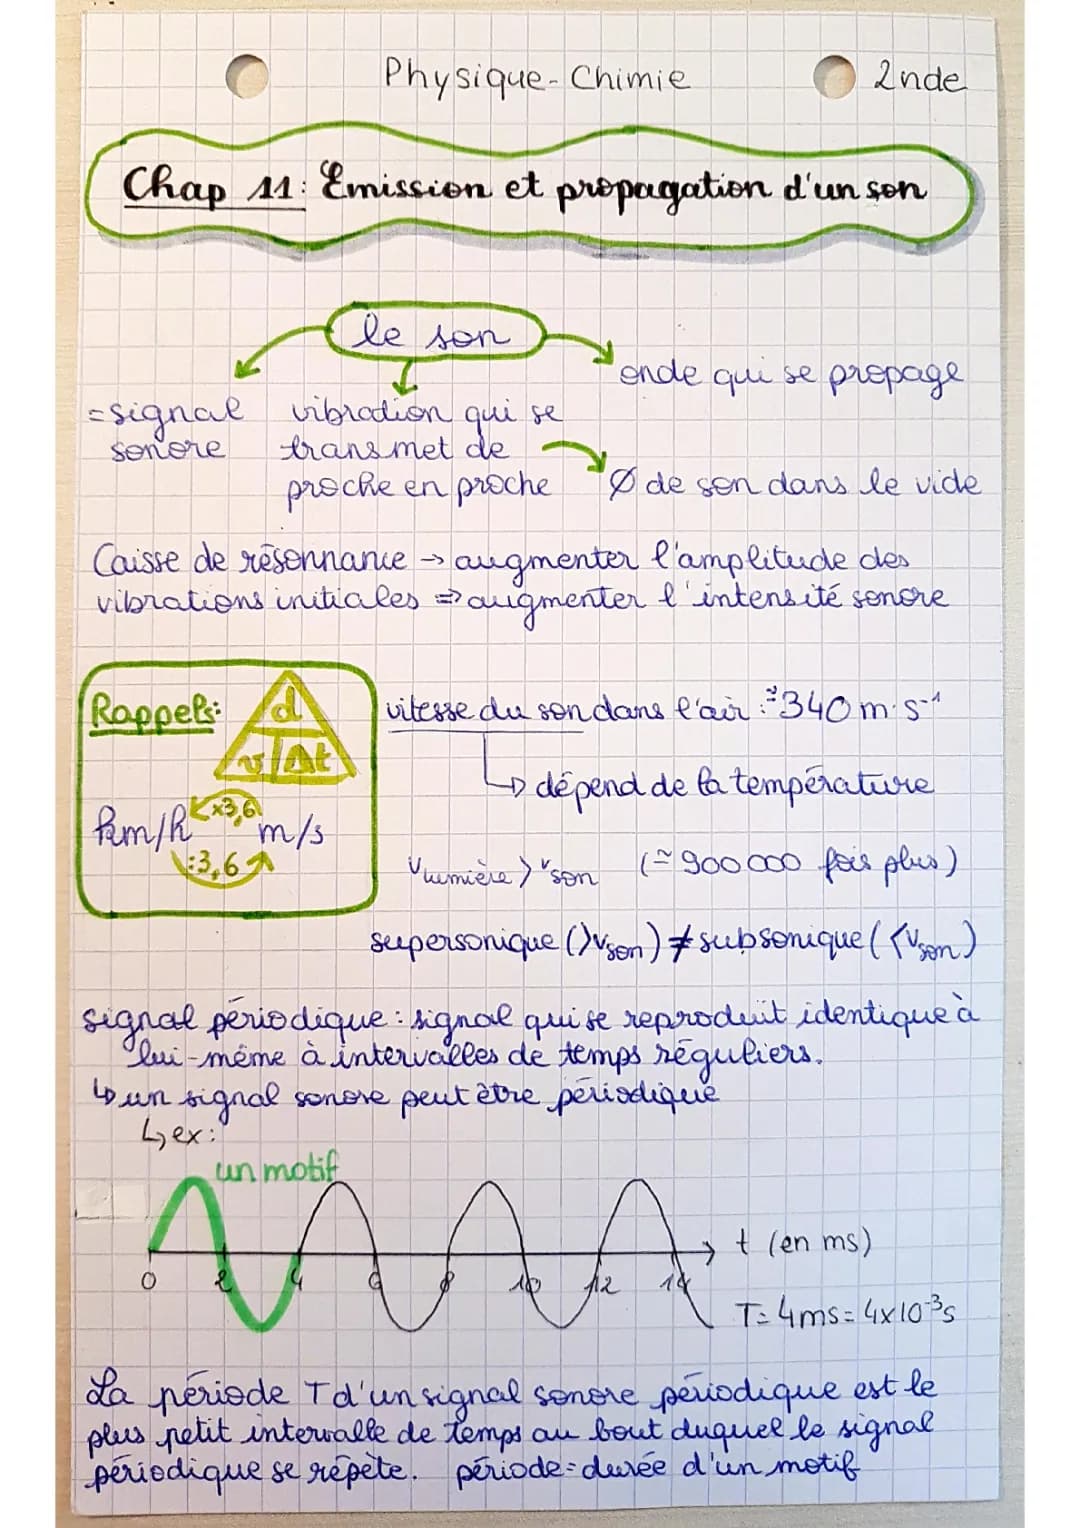 Physique-Chimie
2nde
Chap 11: Émission et propagation d'un son
le son
onde qui se propage
=signal
sonore
vibration qui se
transmet de
proche en proche
Ø de son dans le vide
Caisse de résonnance → augmenter l'amplitude des
vibrations initiales ⇒ augmenter l'intensité sonore
Rappels:
d
v | Δt
km/h ×3,6 m/s
:3,6
vitesse du son dans l'air : ≃340 m·s⁻¹
↳ dépend de la température
Vlumière > Vson (≃ 900 000 fois plus)
supersonique (>Vson) ≠ subsonique (<Vson)
signal périodique : signal qui se reproduit identique à
lui-même à intervalles de temps réguliers.
↳ un signal sonore peut être périodique
↳ ex:
un motif
0 2 4 6 8 10 12 14
t (en ms)
T=4ms=4×10⁻³s
La période T d'un signal sonore périodique est le
plus petit intervalle de temps au bout duquel le signal
périodique se répète. période=durée d'un motif